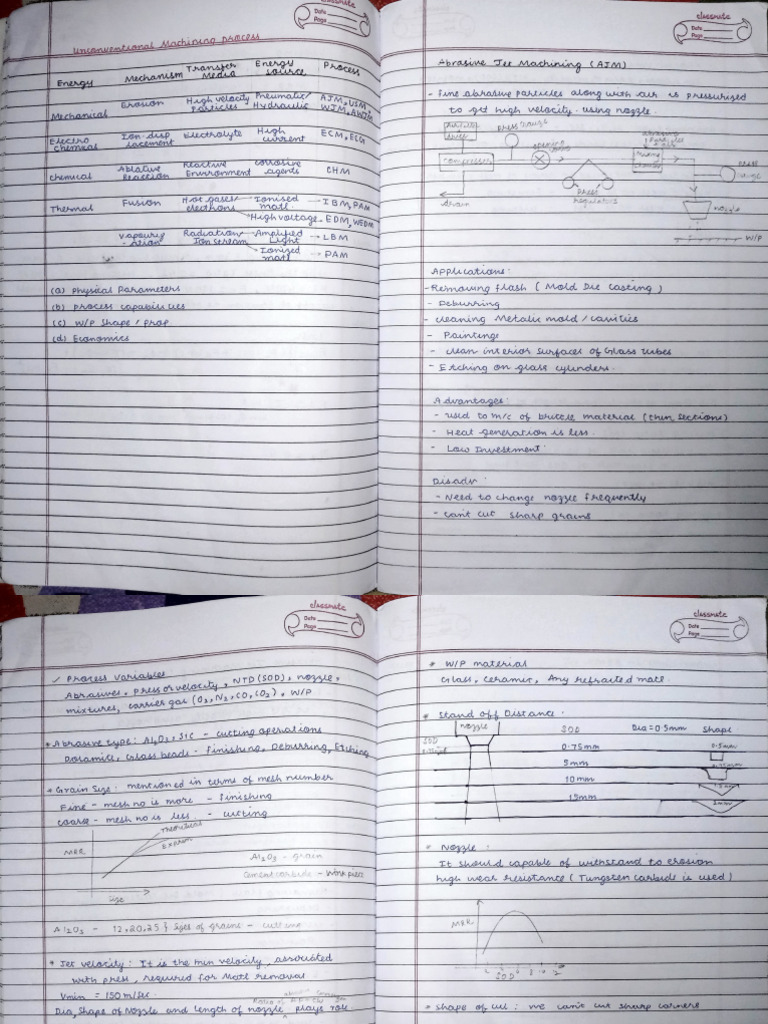 classmate
Date
Page
Unconventional Machining process
Energy Mechanism Transfer Media Energy source Process
Mechanical Erosion High velocity particles Pneumatic/Hydraulic AJM, USM, WJM, AWJM
Electro chemical Ion-disp lacement Electrolyte High current ECM, ECG
Chemical Ablative Reaction Reactive Environment corrosive agents CHM
Thermal Fusion Hot gases electrons Ionised matl → IBM, PAM
High voltage → EDM, WEDM
Vapouri -ation Radiation Amplified Light → LBM
Ion stream Ionized matl → PAM
(a) Physical Parameters
(b) Process capabilities
(c) W/P shape / prop
(d) Economics
classmate
Date
Page
Abrasive Jet Machining (AJM)
- Fine abrasive particles along with air is pressurized
to get high velocity using nozzle.
press gauge
compressor
drain
press regulators
nozzle
W/P
Applications:
- Removing flash ( Mold Die casting )
- Deburring
- cleaning Metalic mold / cavities
- Paintings
- clean interior surfaces of Glass tubes
- Etching on glass cylinders.
Advantages:
- used to m/c of brittle material (thin sections)
- Heat generation is less.
- Low Investment.
Disadv:
- Need to change nozzle frequently
- can't cut sharp grains
classmate
Date
Page
✓ Process Variables
Abrasives, press or velocity, NTD (SOD), nozzle,
mixtures, carrier gas (O2, N2, CO, CO2), W/P
* Abrasive type: Al2O3, SiC - cutting operations
Dolamite, Glass beads - finishing, Deburring, Etching
* Grain Size: mentioned in terms of mesh number
Fine - mesh no is more - finishing
coarse - mesh no is less - cutting
MRR
Size
Al2O3 - grain
Cement carbide - work piece
Al2O3 - 12, 20, 25 } sizes of grains -
* Jet velocity: It is the min velocity, associated
with press, required for Matl removal
Vmin = 150 m/sec.
Dia, shape of Nozzle and length of nozzle plays role
classmate
Date
Page
* W/P material
Glass, ceramic, Any refracted matl.
* Stand off Distance:
nozzle SOD Dia = 0.5mm Shape
SOD
0.75mm 0.5mm
5mm
10mm 1.5mm
15mm 2mm
* Nozzle:
It should capable of withstand to erosion
high wear resistance (Tungsten carbide is used)
MRR
SOD
* Shape of cut: we can't cut sharp corners